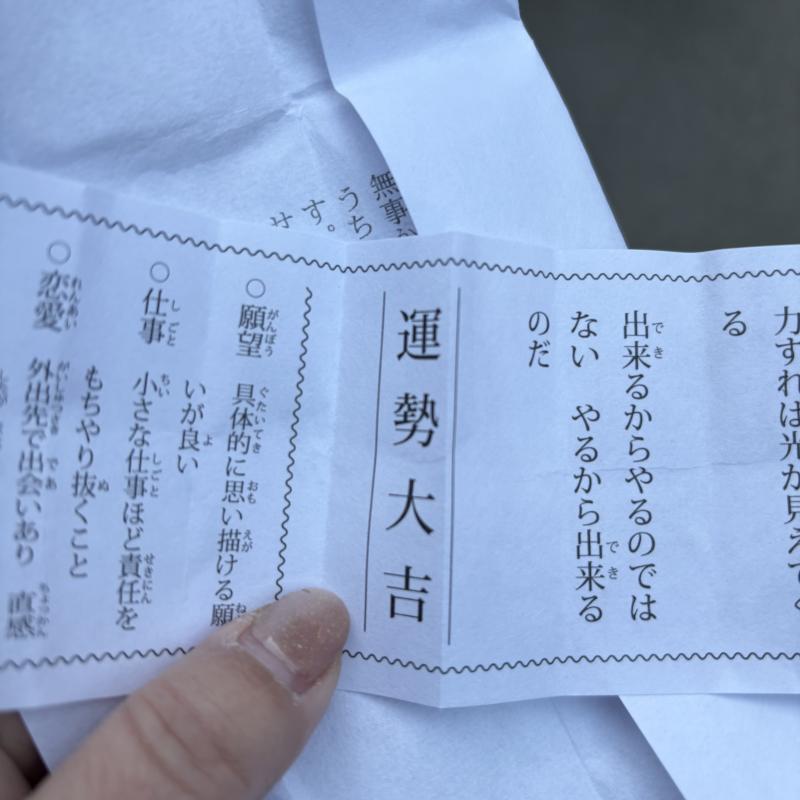 力すれば光が見えてく
る
出来るからやるのでは
ない　やるから出来る
のだ
運勢大吉
○願望　具体的に思い描ける願
いが良い
○仕事　小さな仕事ほど責任を
もちやり抜くこと
○恋愛　外出先で出会いあり　直感
無事
うち
す。
せ